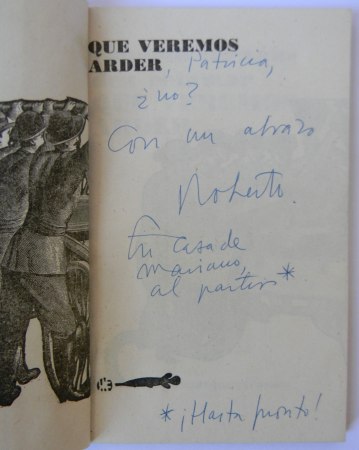 QUE VEREMOS
ARDER, Patricia,
¿no?
Con un abrazo
Roberto.
En casa de
mariano,
al partir*
*¡Hasta pronto!